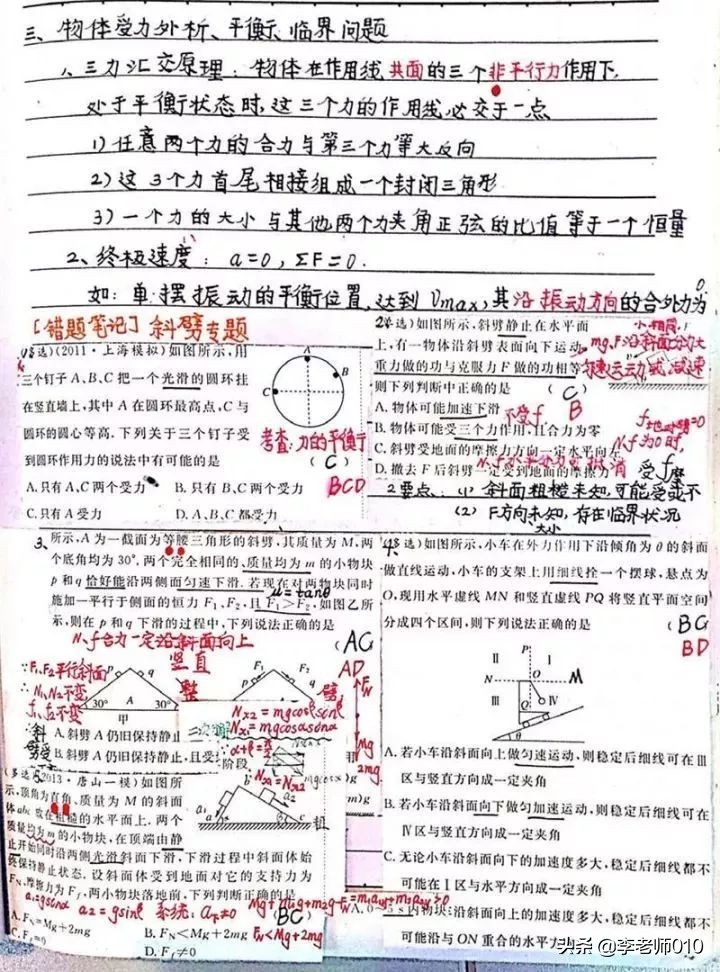 三、物体受力分析、平衡、临界问题
1、三力汇交原理：物体在作用线共面的三个非平行力作用下，
处于平衡状态时，这三个力的作用线必交于一点
1)任意两个力的合力与第三个力等大反向
2)这3个力首尾相接组成一个封闭三角形
3)一个力的大小与其他两个力夹角正弦的比值等于一个恒量
2、终极速度：a=0，ΣF=0.
如：单摆振动的平衡位置，达到Vmax，其沿振动方向的合外力为0
[错题笔记]斜劈专题
选)(2011·上海模拟)如图所示，用
三个钉子A、B、C把一个光滑的圆环挂
在竖直墙上，其中A在圆环最高点，C与
圆环的圆心等高。下列关于三个钉子受
到圆环作用力的说法中有可能的是
(C)
BCD
考查：力的平衡
A.只有A、C两个受力 B.只有B、C两个受力
C.只有A受力 D.A、B、C都受力
A
B
C
选)如图所示，斜劈静止在水平面
上，有一物体沿斜劈表面向下运动，
重力做的功与克服力F做的功相等
则下列判断中正确的是 (C)
B
A.物体可能加速下滑
不受f
B.物体可能受三个力作用，且合力为零
C.斜劈受地面的摩擦力方向一定水平向左
D.撤去F后斜劈一定受到地面的摩擦力
2要点：(1)斜面粗糙未知，可能受或不
受f摩
(2)F方向未知，存在临界状况
大小
3、所示，A为一截面为等腰三角形的斜劈，其质量为M，两
个底角均为30°，两个完全相同的、质量均为m的小物块
p和q恰好能沿两侧面匀速下滑。若现在对两物块同时
μ=tanθ
施加一平行于侧面的恒力F1、F2，且F1>F2，如图乙所
示，则在p和q下滑的过程中，下列说法正确的是
N、f合力一定沿斜面向上
竖直
(AC
AD
∵F1、F2平行斜面
∴N1、N2不变
f1、f2不变
p q
30° A 30°
甲
F1 F2
A.斜劈A仍旧保持静止
B.斜劈A仍旧保持静止，且受
Nx2=mgcosβsinβ
Nx1=mgcosαsinα
Nx1=Nx2
选)如图所示，小车在外力作用下沿倾角为θ的斜面
做直线运动，小车的支架上用细线拴一个摆球，悬点为
O，现用水平虚线MN和竖直虚线PQ将竖直平面空间
分成四个区间，则下列说法正确的是 (BC
BD
P
Ⅱ Ⅰ
N O M
Ⅲ Ⅳ
Q
θ
A.若小车沿斜面向上做匀速运动，则稳定后细线可在Ⅲ
区与竖直方向成一定夹角
B.若小车沿斜面向下做匀加速运动，则稳定后细线可在
Ⅳ区与竖直方向成一定夹角
C.无论小车沿斜面向下的加速度多大，稳定后细线都不
可能在Ⅰ区与水平方向成一定夹角
沿斜面向上的加速度多大，稳定后细线都不
可能沿与ON重合的水平方
(多选)5、2013·唐山一模)如图所
示，顶角为直角、质量为M的斜面
体abc放在粗糙的水平面上，两个
质量均为m的小物块，在顶端由静
止开始同时沿两侧光滑斜面下滑，下滑过程中斜面体始
终保持静止状态。设斜面体受到地面对它的支持力为
FN，摩擦力为Ff，两小物块落地前，下列判断正确的是
a1=gsinα a2=gsinβ 系统：
(BC)
A.FN=Mg+2mg B.FN<Mg+2mg FN<Mg+2mg
C.Ff=0 D.Ff≠0
头条 @李老师010